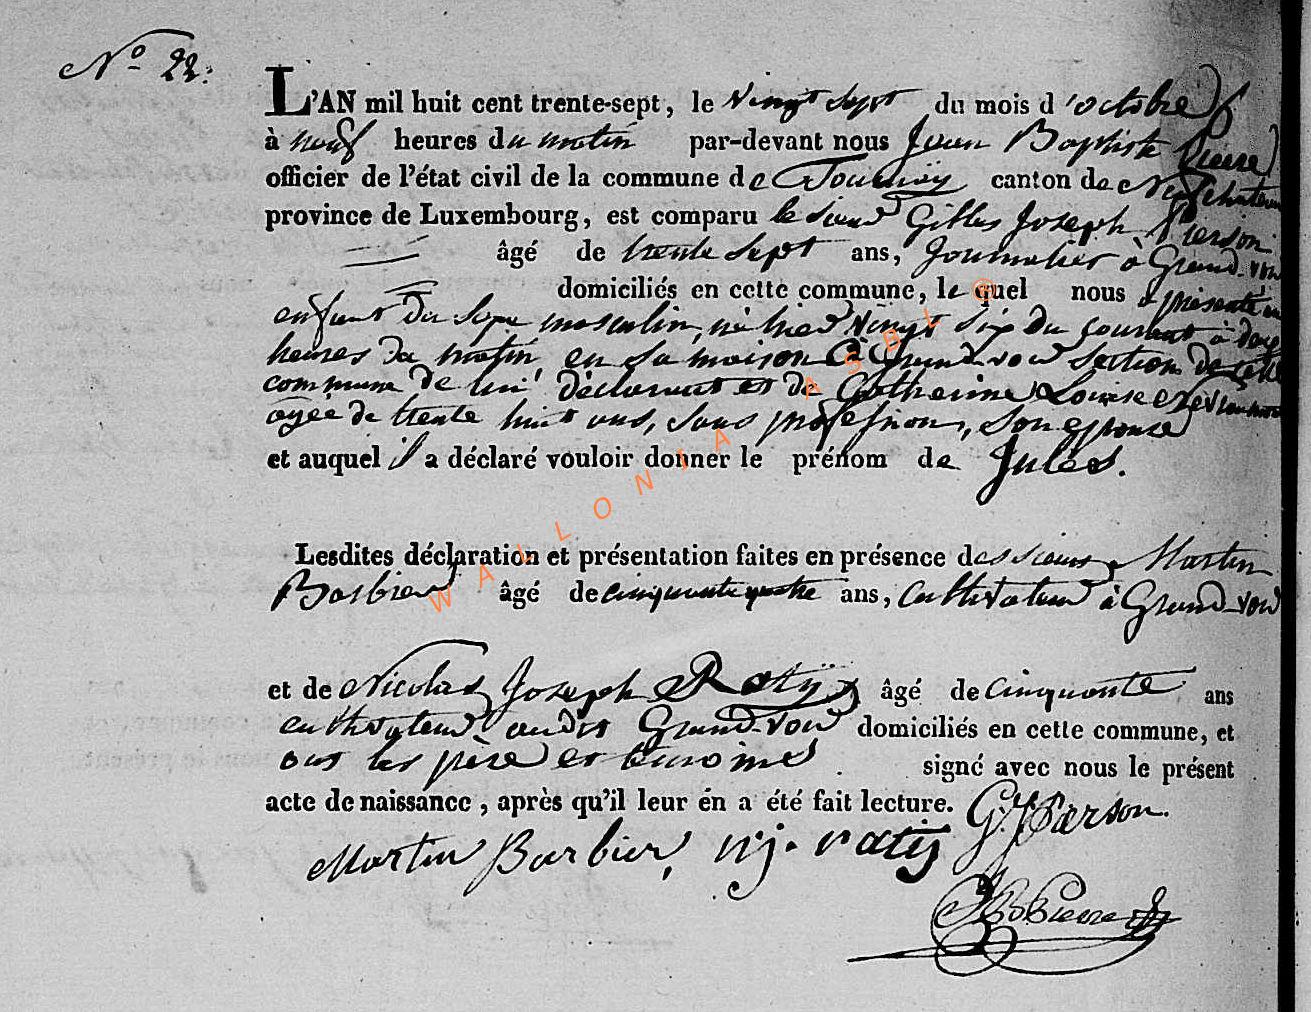 N.º 22.
L'AN mil huit cent trente-sept, le vingt sept du mois d'octobre
à neuf heures du matin par-devant nous Jean Baptiste Pierre
officier de l'état civil de la commune de Tournay canton de Neufchateau
province de Luxembourg, est comparu le sieur Gilles Joseph Pierson
âgé de trente sept ans, Journalier à Grand-voir
domiciliés en cette commune, lequel nous a présenté un
enfant du sexe masculin, né hier vingt six du courant à deux
heures du matin, en sa maison à Grand-voir section de cette
commune de lui déclarant et de Catherine Louise
agée de trente huit ans, sans profession, son epouse
et auquel il a déclaré vouloir donner le prénom de Jules.
Lesdites déclaration et présentation faites en présence des sieurs Martin
Barbier âgé de cinquante quatre ans, cultivateur à Grand-voir
et de Nicolas Joseph Ratÿ âgé de cinquante ans
cultivateur audit Grand-voir domiciliés en cette commune, et
ont les père et temoins signé avec nous le présent
acte de naissance, après qu'il leur en a été fait lecture. G. J. Pierson.
Martin Barbier, nj. ratÿ
JB Pierre
WALLONIA ASBL ©